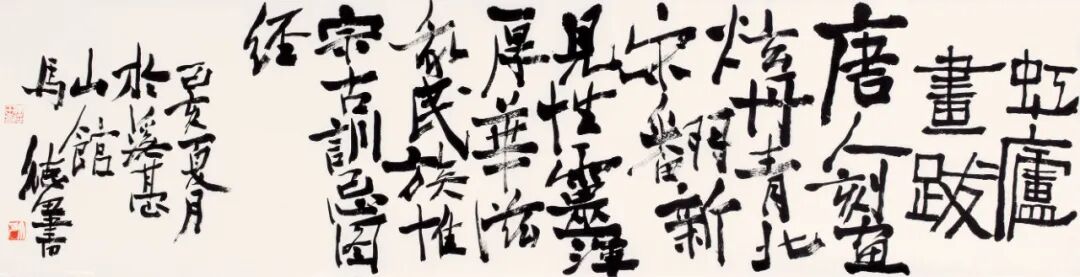 虹廬
畫跋
唐人刻畫
炫丹青北
宋翻新
見性靈渾
厚華滋
我民族惟
宗古訓忘圖
經
己亥夏月
於
山館
馬
書